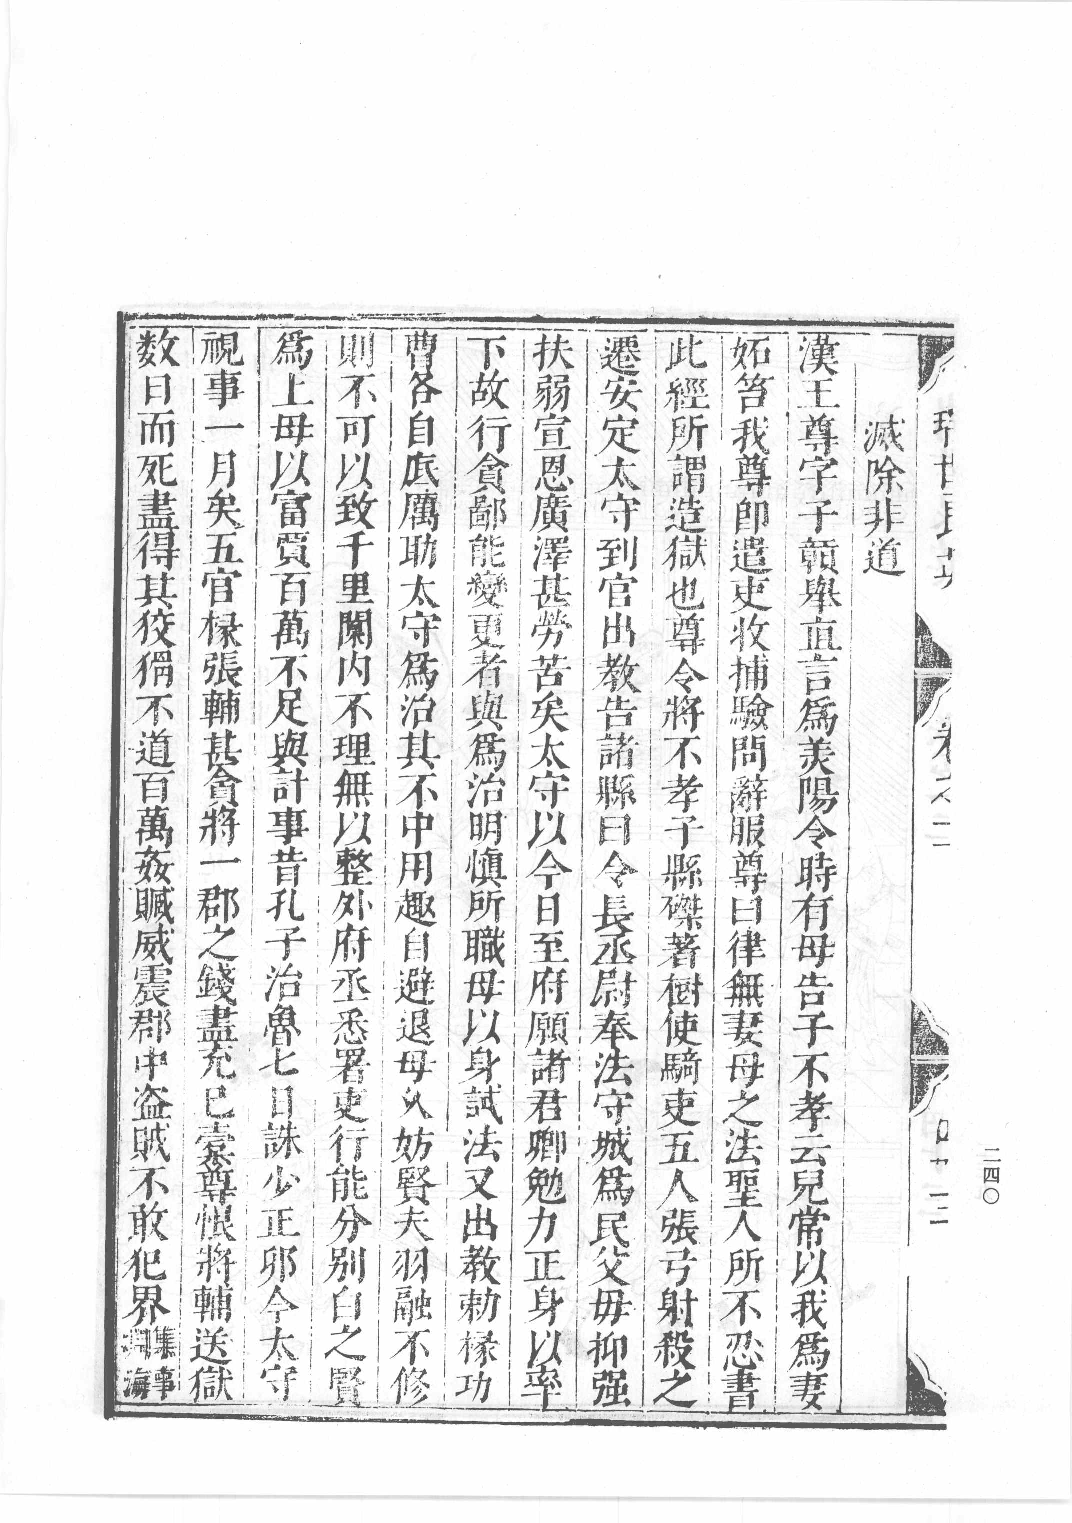 滅除非道
漢王尊字子贛舉直言爲美陽令時有母告子不孝云兒常以我爲妻
妬笞我尊卽遣吏收捕驗問辭服尊曰律無妻母之法聖人所不忍書
此經所謂造獄也尊令將不孝子縣磔著樹使騎吏五人張弓射殺之
遷安定太守到官出教告諸縣曰令長丞尉奉法守城爲民父毋抑强
扶弱宣恩廣澤甚勞苦矣太守以今日至府願諸君卿勉力正身以率
下故行貪鄙能變更者與爲治明慎所職母以身試法又出教勅椽功
曹各自底厲助太守爲治其不中用趣自避退母乆妨賢夫羽融不修
則不可以致千里闑内不理無以整外府丞悉署吏行能分别白之賢
爲上母以富賈百萬不足與計事昔孔子治魯七日誅少正卯今太守
視事一月矣五官椽張輔甚貪將一郡之錢盡充已橐尊恨將輔送獄
数日而死盡得其狡猾不道百萬姦贓威震郡中盗賊不敢犯界
集事
淵海
卷之二
二四〇